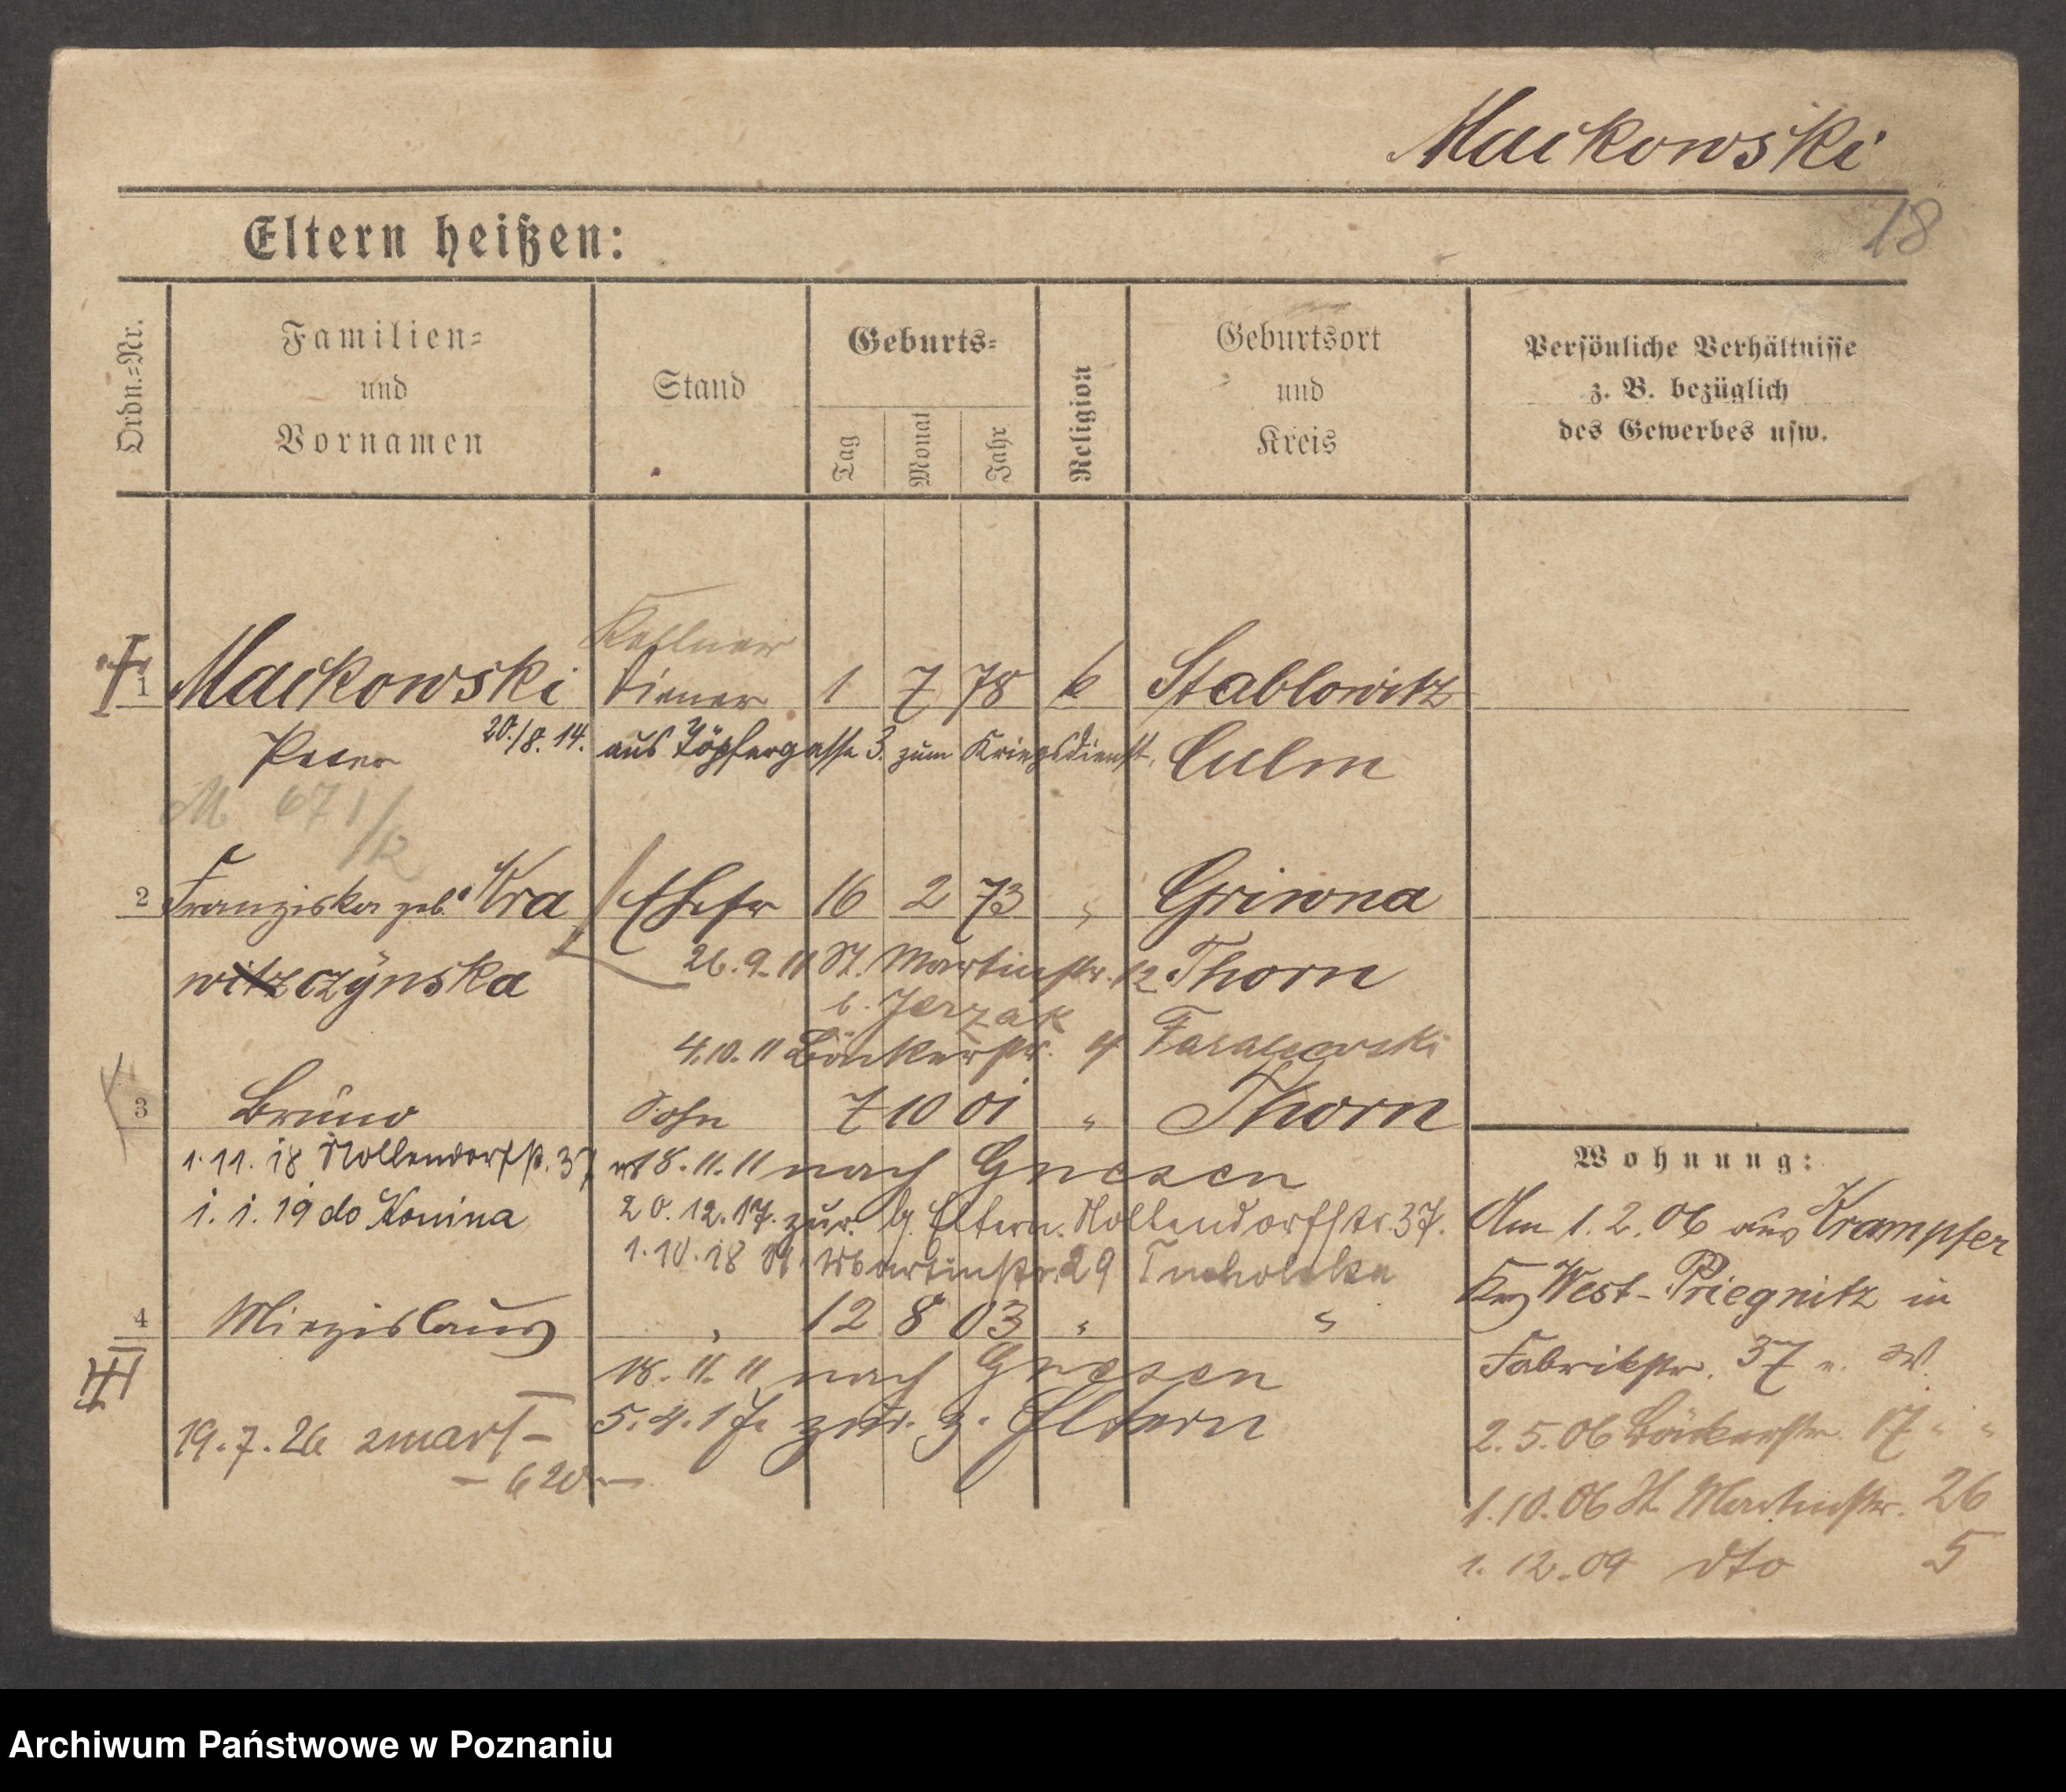 Mackowski
18
Eltern heißen:
Ordn.-Nr.
Familien-
und
Vornamen
Stand
Geburts-
Tag
Monat
Jahr
Religion
Geburtsort
und
Kreis
Persönliche Verhältnisse
z. B. bezüglich
des Gewerbes usw.
Kellner
1 Mackowski Diener 1 7 78 k Stablowitz
Peter 20./8. 14. aus Töpfergasse 3. zum Kriegsdienst. Culm
M 671/12
2 Franziska geb. Kra Ehefr 16 2 73 " Griwna
26.9.11 St. Martinstr. 12 Thorn
wczynska
b. Jerzak
4.10.11 Bäckerstr. 4
3 Bruno Sohn 7 10 01 " Thorn
1.11.18 Nollendorfstr. 37 18.11.11 nach Gnesen
1.1.19 do Konina 20.12.17. zur. Eltern. Nollendorfstr. 37.
1.10.18 St. Martinstr. 29 Tucholska
4 Miezislaus " 12 8 03 " "
18.11.11 nach Gnesen
5.4.17. zur. z. Eltern
19.7.26 zmarł –
– 620 –
Wohnung:
Am 1.2.06 aus Krampfer
Krs West-Priegnitz in
Fabrikstr. 37
2.5.06 Bäckerstr. 17 " "
1.10.06 St. Martinstr. 26
1.12.09 dto 5
Archiwum Państwowe w Poznaniu